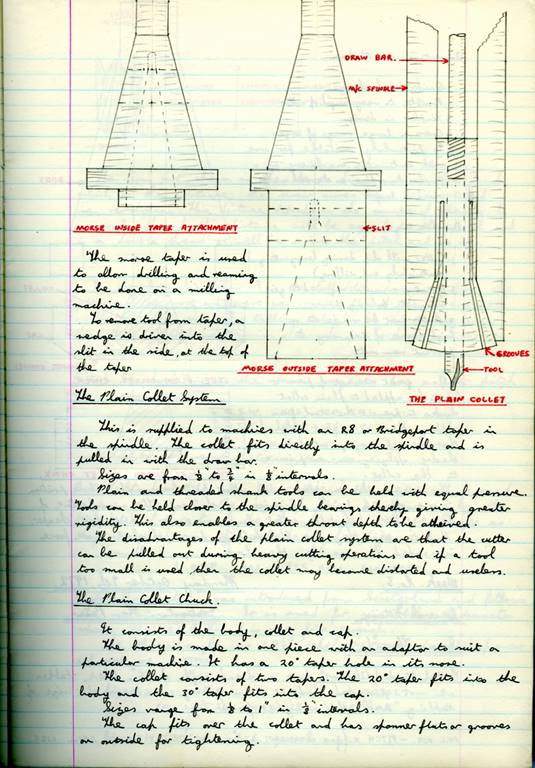 DRAW BAR.
M/C SPINDLE
MORSE INSIDE TAPER ATTACHMENT
SLIT
The morse taper is used
to allow drilling and reaming
to be done on a milling
machine.
To remove tool from taper, a
wedge is driven into the
slit in the side, at the top of
the taper
MORSE OUTSIDE TAPER ATTACHMENT
GROOVES
TOOL
THE PLAIN COLLET
The Plain Collet System
This is supplied to machines with an R8 or Bridgeport taper in
the spindle. The collet fits directly into the spindle and is
pulled in with the draw bar.
Sizes are from to in intervals.
Plain and threaded shank tools can be held with equal pressure.
Tools can be held closer to the spindle bearings thereby giving greater
rigidity. This also enables a greater throat depth to be atheived.
The disadvantages of the plain collet system are that the cutter
can be pulled out during heavy cutting operations and if a tool
too small is used then the collet may become distorted and useless.
The Plain Collet Chuck.
It consists of the body, collet and cap.
The body is made in one piece with an adaptor to suit a
particular machine. It has a 20° taper hole in its nose.
The collet consists of two tapers. The 20° taper fits into the
body and the 30° taper fits into the cap.
Sizes range from to 1" in intervals.
The cap fits over the collet and has spanner flats or grooves
on outside for tightening.